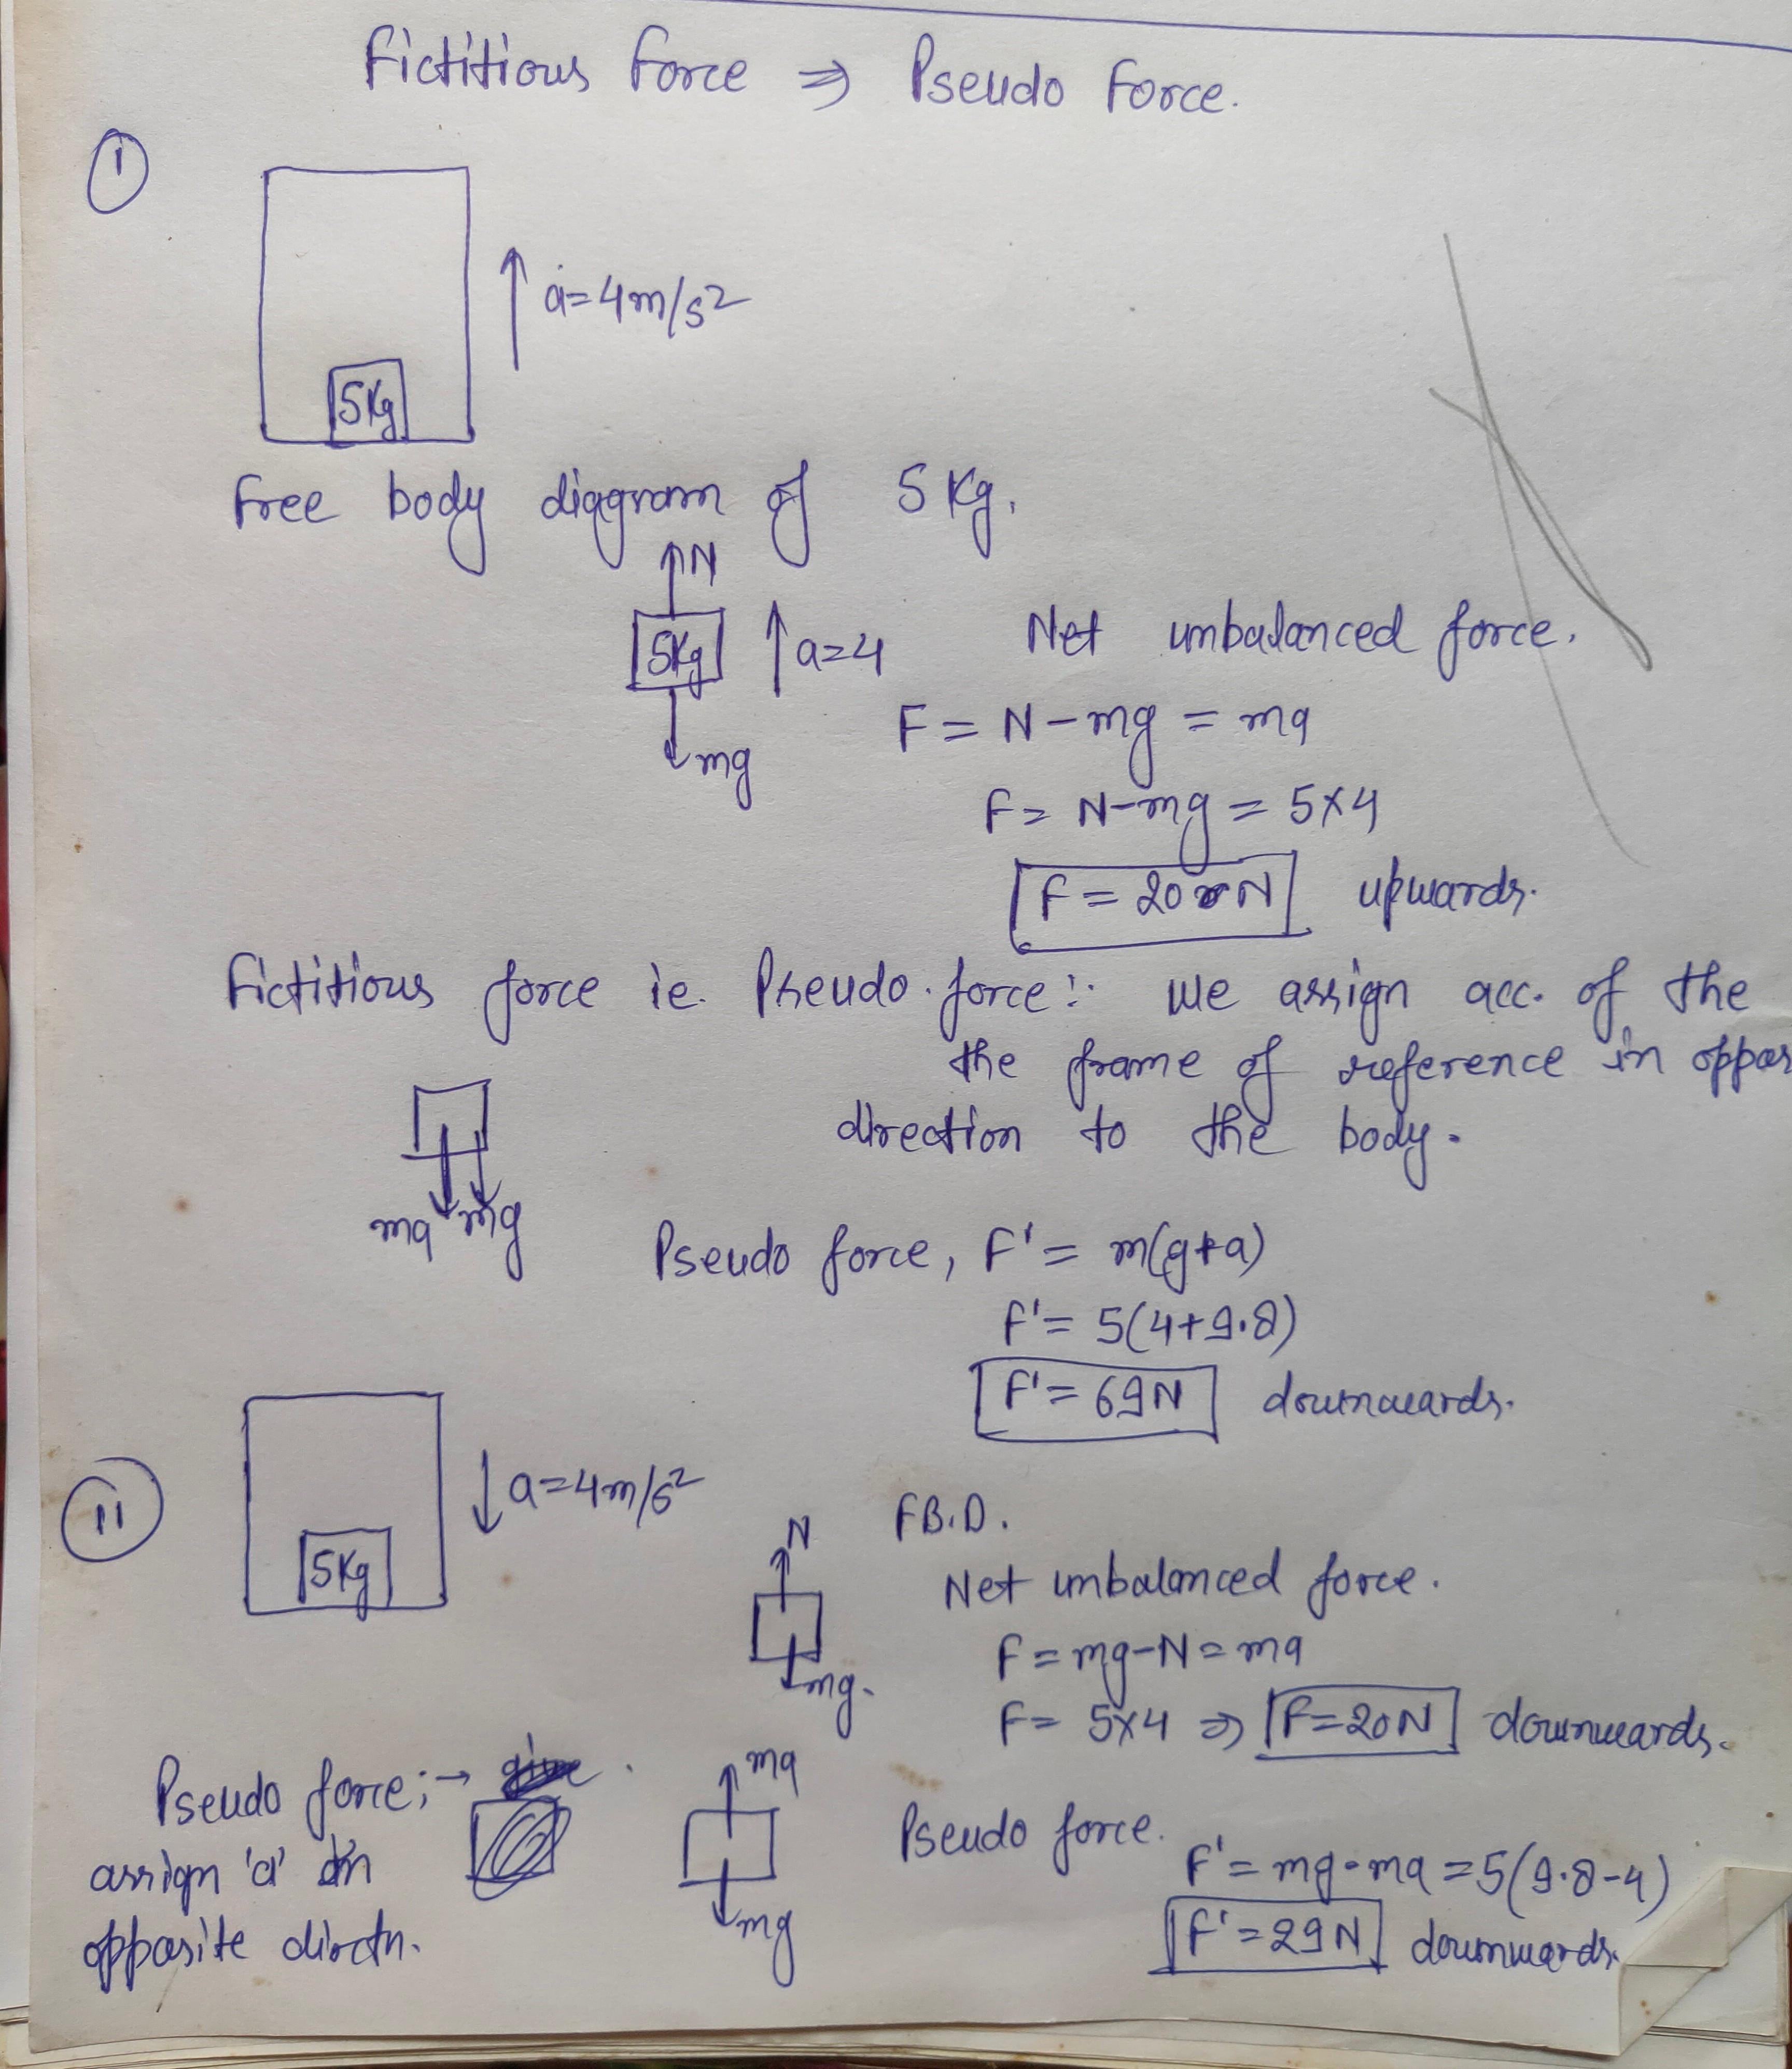 Fictitious Force ⇒ Pseudo Force.
I
a=4m/s²
5Kg
Free body diagram of 5 Kg.
N
5Kg
a=4
mg
Net unbalanced force.
F = N-mg = ma
F = N-mg = 5×4
F = 20 N upwards.
Fictitious force ie. Pseudo force:- We assign acc. of the
the frame of reference in oppos
direction to the body.
ma mg
Pseudo force, F' = m(g+a)
F' = 5(4+9.8)
F' = 69N downwards.
II
a=4m/s²
5Kg
N
mg.
F.B.D.
Net unbalanced force.
F = mg-N = ma
F = 5×4 ⇒ F=20N downwards.
Pseudo force:→
assign 'a' in
opposite dirctn.
ma
mg
Pseudo force.
F' = mg-ma = 5(9.8-4)
F' = 29N downwards.